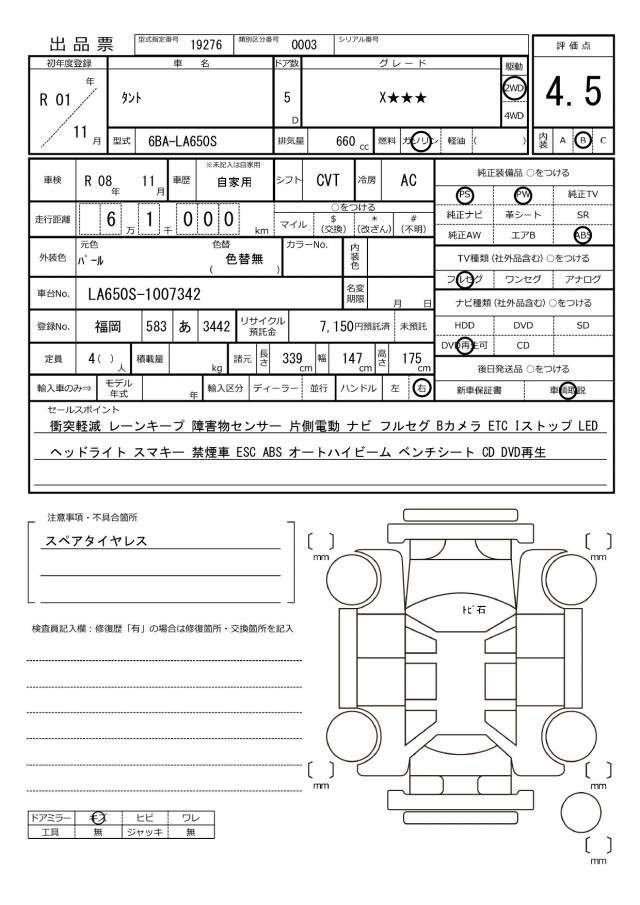 出品票 型式指定番号 19276 類別区分番号 0003 シリアル番号
初年度登録 車名 ドア数 グレード 駆動 評価点
R 01 年 11 月 タント 5 D X★★★ 2WD 4WD 4.5
型式 6BA-LA650S 排気量 660 cc 燃料 ガソリン 軽油 ( ) 内装 A B C
車検 R 08 年 11 月 車歴 ※未記入は自家用 自家用 シフト CVT 冷房 AC 純正装備品 ○をつける
PS PW 純正TV
走行距離 6 万 1 千 0 0 0 km ○をつける マイル $ (交換) * (改ざん) # (不明)
純正ナビ 革シート SR
純正AW エアB ABS
外装色 元色 パール 色替 ( 色替無 ) カラーNo. 内装色
TV種類 (社外品含む) ○をつける
フルセグ ワンセグ アナログ
車台No. LA650S-1007342 名変期限 月 日
ナビ種類 (社外品含む) ○をつける
登録No. 福岡 583 あ 3442 リサイクル預託金 7,150円預託済 未預託
HDD DVD SD
DVD再生可 CD
定員 4 ( ) 人 積載量 kg 諸元 長さ 339 cm 幅 147 cm 高さ 175 cm
後日発送品 ○をつける
輸入車のみ⇒ モデル年式 年 輸入区分 ディーラー 並行 ハンドル 左 右
新車保証書 車輌取説
セールスポイント
衝突軽減 レーンキープ 障害物センサー 片側電動 ナビ フルセグ Bカメラ ETC Iストップ LED
ヘッドライト スマキー 禁煙車 ESC ABS オートハイビーム ベンチシート CD DVD再生
注意事項・不具合箇所
スペアタイヤレス
[ ] mm [ ] mm
トビ石
検査員記入欄:修復歴「有」の場合は修復箇所・交換箇所を記入
[ ] mm [ ] mm
ドアミラー キズ ヒビ ワレ
工具 無 ジャッキ 無
[ ] mm